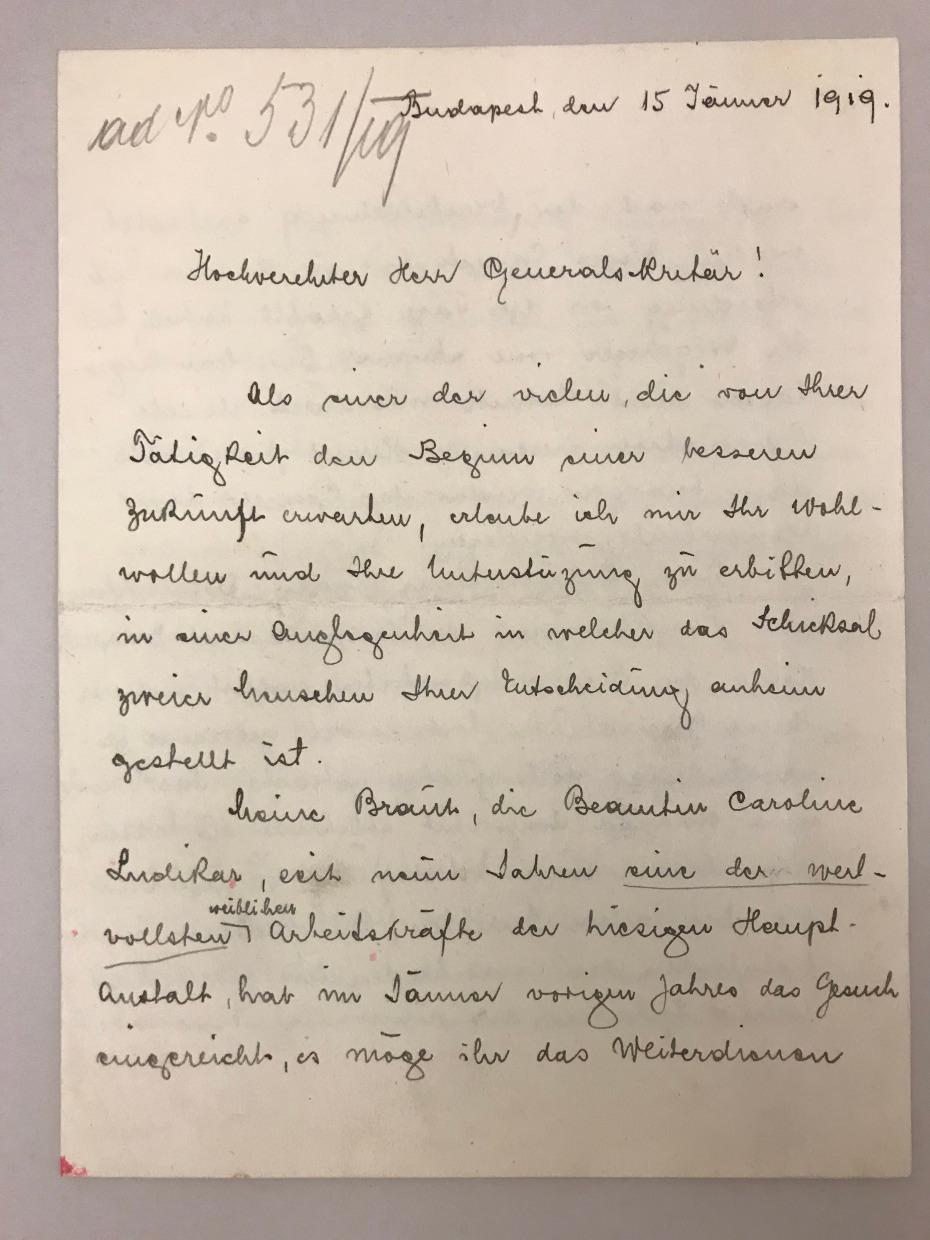 ad No. 531/19
Budapest, den 15 Jänner 1919.
Hochverehrter Herr Generalsekretär!
Als einer der vielen, die von Ihrer
Tätigkeit den Beginn einer besseren
Zukunft erwarten, erlaube ich mir Ihr Wohl-
wollen und Ihre Unterstüzung zu erbitten,
in einer Anglegenheit in welcher das Schicksal
zweier Menschen Ihrer Entscheidung anheim
gestellt ist.
Meine Braut, die Beamtin Caroline
Ludikar, seit neun Jahren eine der wert-
weiblichen
vollsten Arbeitskräfte der hiesigen Haupt-
Anstalt, hat im Jänner vorigen Jahres das Gesuch
eingereicht, es möge ihr das Weiterdienen